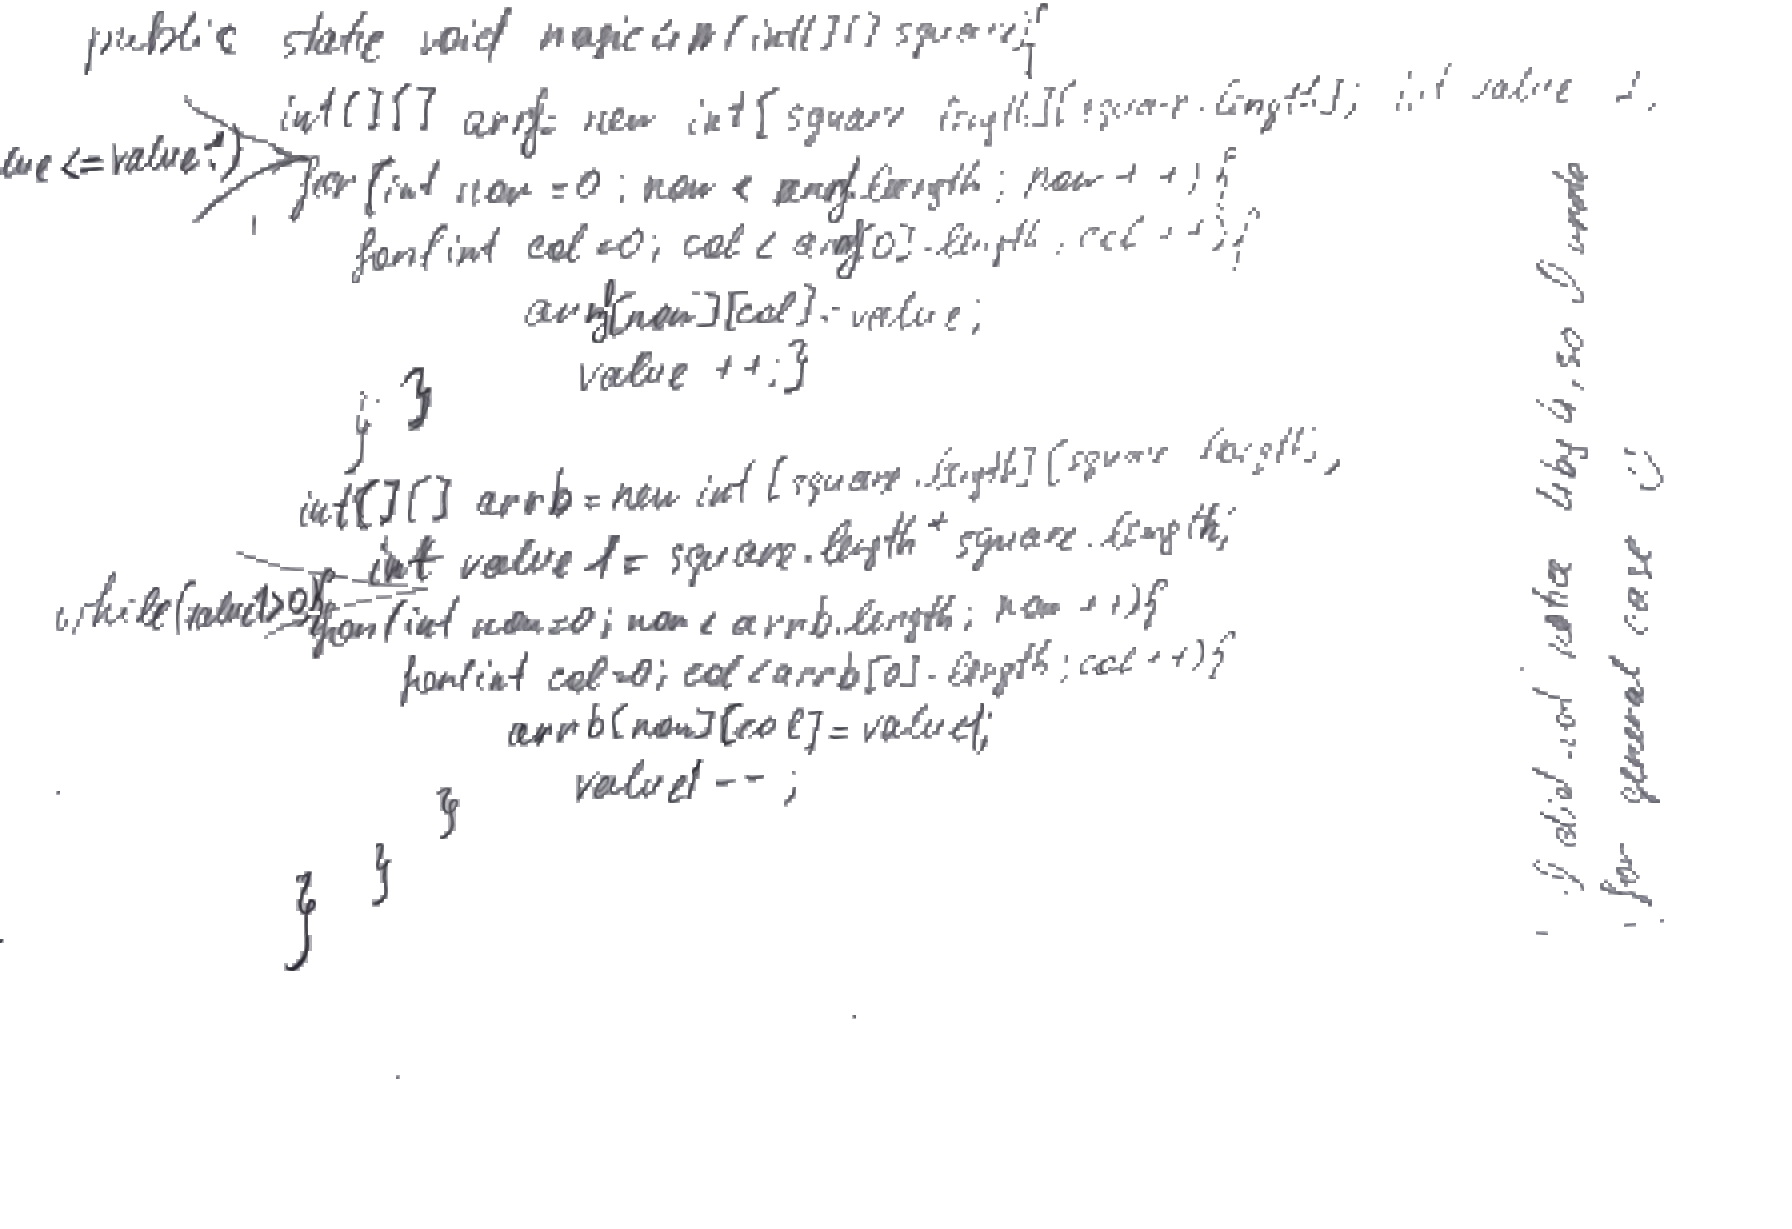 public static void magic4m(int[][] square{
int[][] arrf= new int[square length][square.length]; int value 1,
lue <=value1)
for(int row =0; row < arrf.length; row++){
for(int col =0; col < arrf[0].length; col ++){
arrf[row][col]=value;
value ++;}
} }
int[][] arrb=new int[square.length][square length,
int value1= square.length*square.length;
while(value1>0){
for(int row=0; row < arrb.length; row ++){
for(int col=0; col<arrb[0].length;col++){
arrb[row][col]=value1;
value1--;
}
}
}
I did not notice 4by4, so I wrote
for general case :)